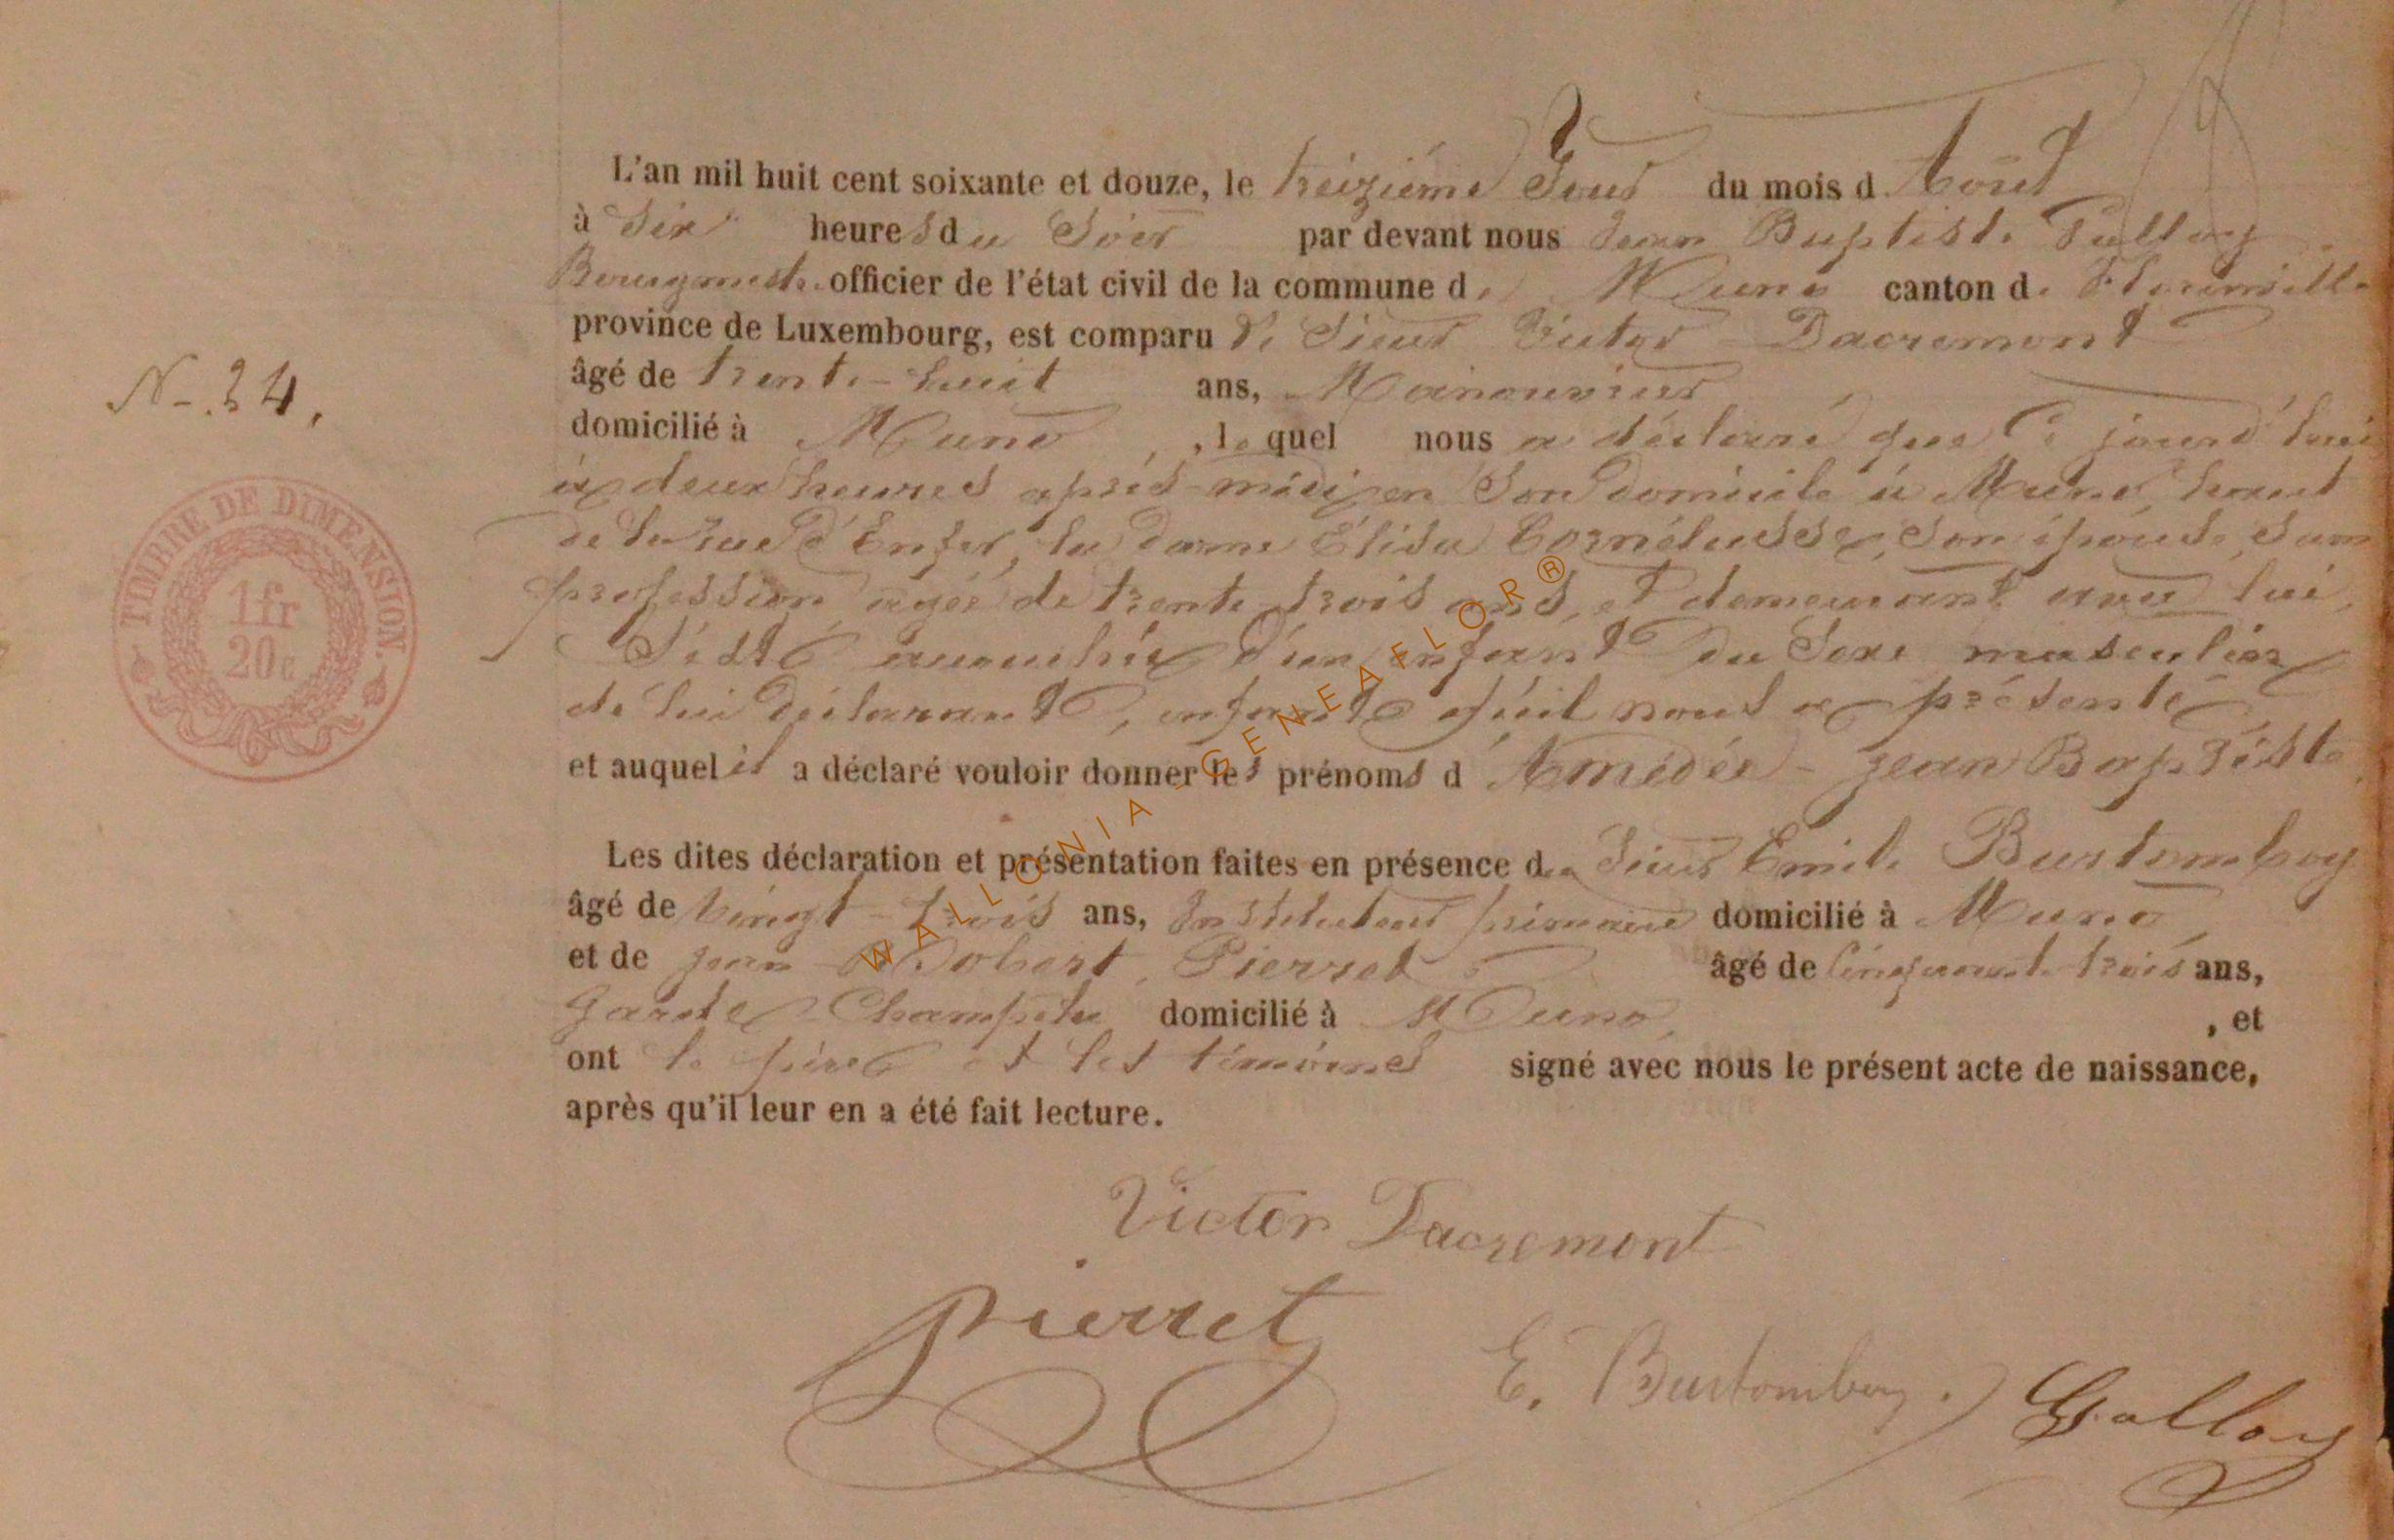 L'an mil huit cent soixante et douze, le treizième Jour du mois d'Août
à Six heures du Soir par devant nous Jean Baptiste
Bourgmestre officier de l'état civil de la commune de Muno canton de Florenville
province de Luxembourg, est comparu le Sieur Victor Dacremont
âgé de trente-huit ans, Manouvrier
N-. 24.
domicilié à Muno, lequel nous a déclaré que Ce jourd'hui
à deux heures après-midi en Son domicile à Muno,
de la rue d'Enfer, la dame Élisa Cornélusse, Son épouse, Sans
profession âgée de trente-trois ans, et demeurant avec lui,
S'est accouchée d'un enfant du Sexe masculin
de lui déclarant, enfant qu'il nous a présenté
et auquel il a déclaré vouloir donner les prénoms d'Amédée-Jean Baptiste
TIMBRE DE DIMENSION
1fr
20c
Les dites déclaration et présentation faites en présence de Sieur Emile Burtomboy
âgé de vingt-trois ans, Instituteur primaire domicilié à Muno
et de Jean Pierret âgé de Cinquante-trois ans,
Garde Champêtre domicilié à Muno, et
ont le père et les témoins signé avec nous le présent acte de naissance,
après qu'il leur en a été fait lecture.
Victor Dacremont
Pierret
E. Burtomboy.
WALLONIA - GENEAFLOR®